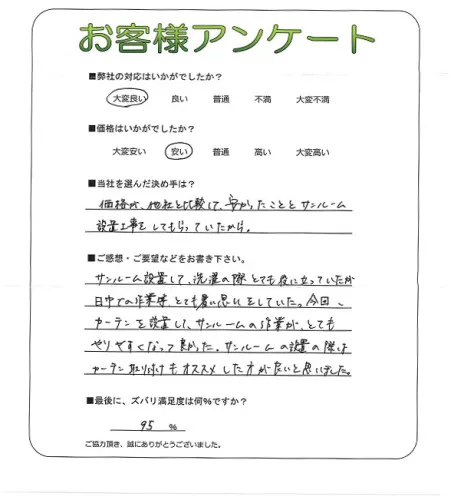 お客様アンケート
■弊社の対応はいかがでしたか？
大変良い 良い 普通 不満 大変不満
■価格はいかがでしたか？
大変安い 安い 普通 高い 大変高い
■当社を選んだ決め手は？
価格が、他社と比較して、安かったこととサンルーム
設置工事をしてもらっていたから。
■ご感想・ご要望などをお書き下さい。
サンルーム設置して、洗濯の際とても役に立っていたが
日中での作業時、とても暑い思いをしていた。今回、
カーテンを設置して、サンルームの作業が、とても
やりやすくなって良かった。サンルームの設置の際は
カーテン取り付けもオススメした方が良いと思いました。
■最後に、ズバリ満足度は何％ですか？
95 ％
ご協力頂き、誠にありがとうございました。